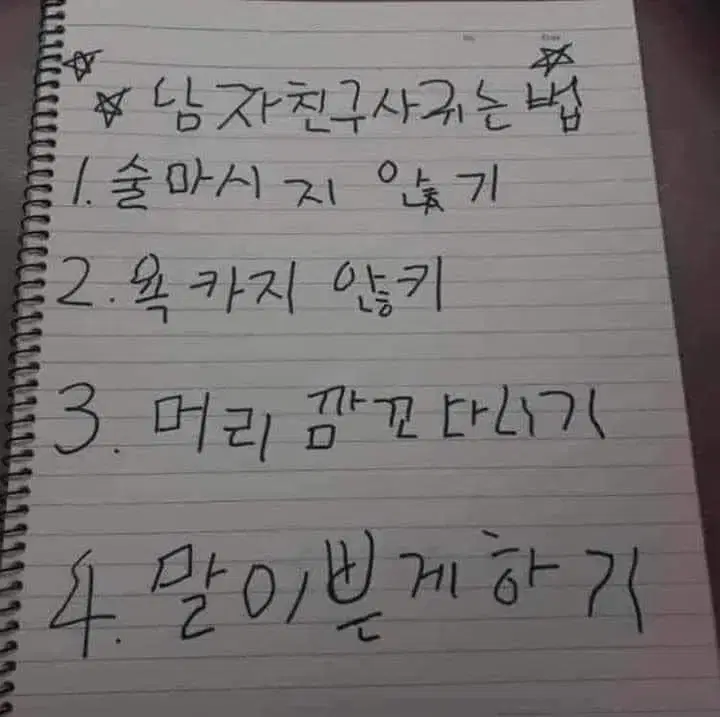 ☆ ☆
☆ 남자친구사귀는 법
1. 술마시지 않기
2. 욕카지 않키
3. 머리 깜꼬다니기
4. 말이쁜게하기